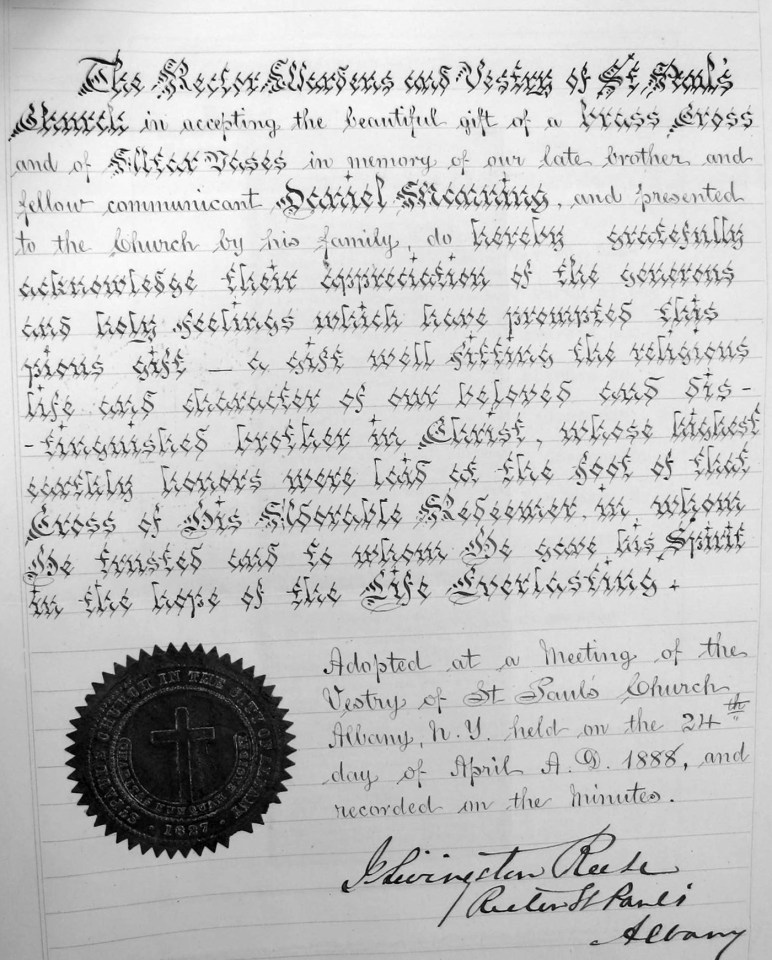 The Rector Wardens and Vestry of St Paul's
Church in accepting the beautiful gift of a brass Cross
and of Altar Vases in memory of our late brother and
fellow communicant Daniel Manning, and presented
to the Church by his family, do hereby gratefully
acknowledge their appreciation of the generous
and holy feelings which have prompted this
pious gift — a gift well fitting the religious
life and character of our beloved and dis-
-tinguished brother in Christ, whose highest
earthly honors were laid at the foot of that
Cross of His Adorable Redeemer, in whom
He trusted and to whom He gave his Spirit
in the hope of the Life Everlasting.
Adopted at a Meeting of the
Vestry of St Paul's Church
Albany, N.Y. held on the 24th
day of April A.D. 1888, and
recorded in the Minutes.
J Livingston Reese
Rector St Paul's
Albany
ST PAUL'S CHURCH IN THE CITY OF ALBANY
1827